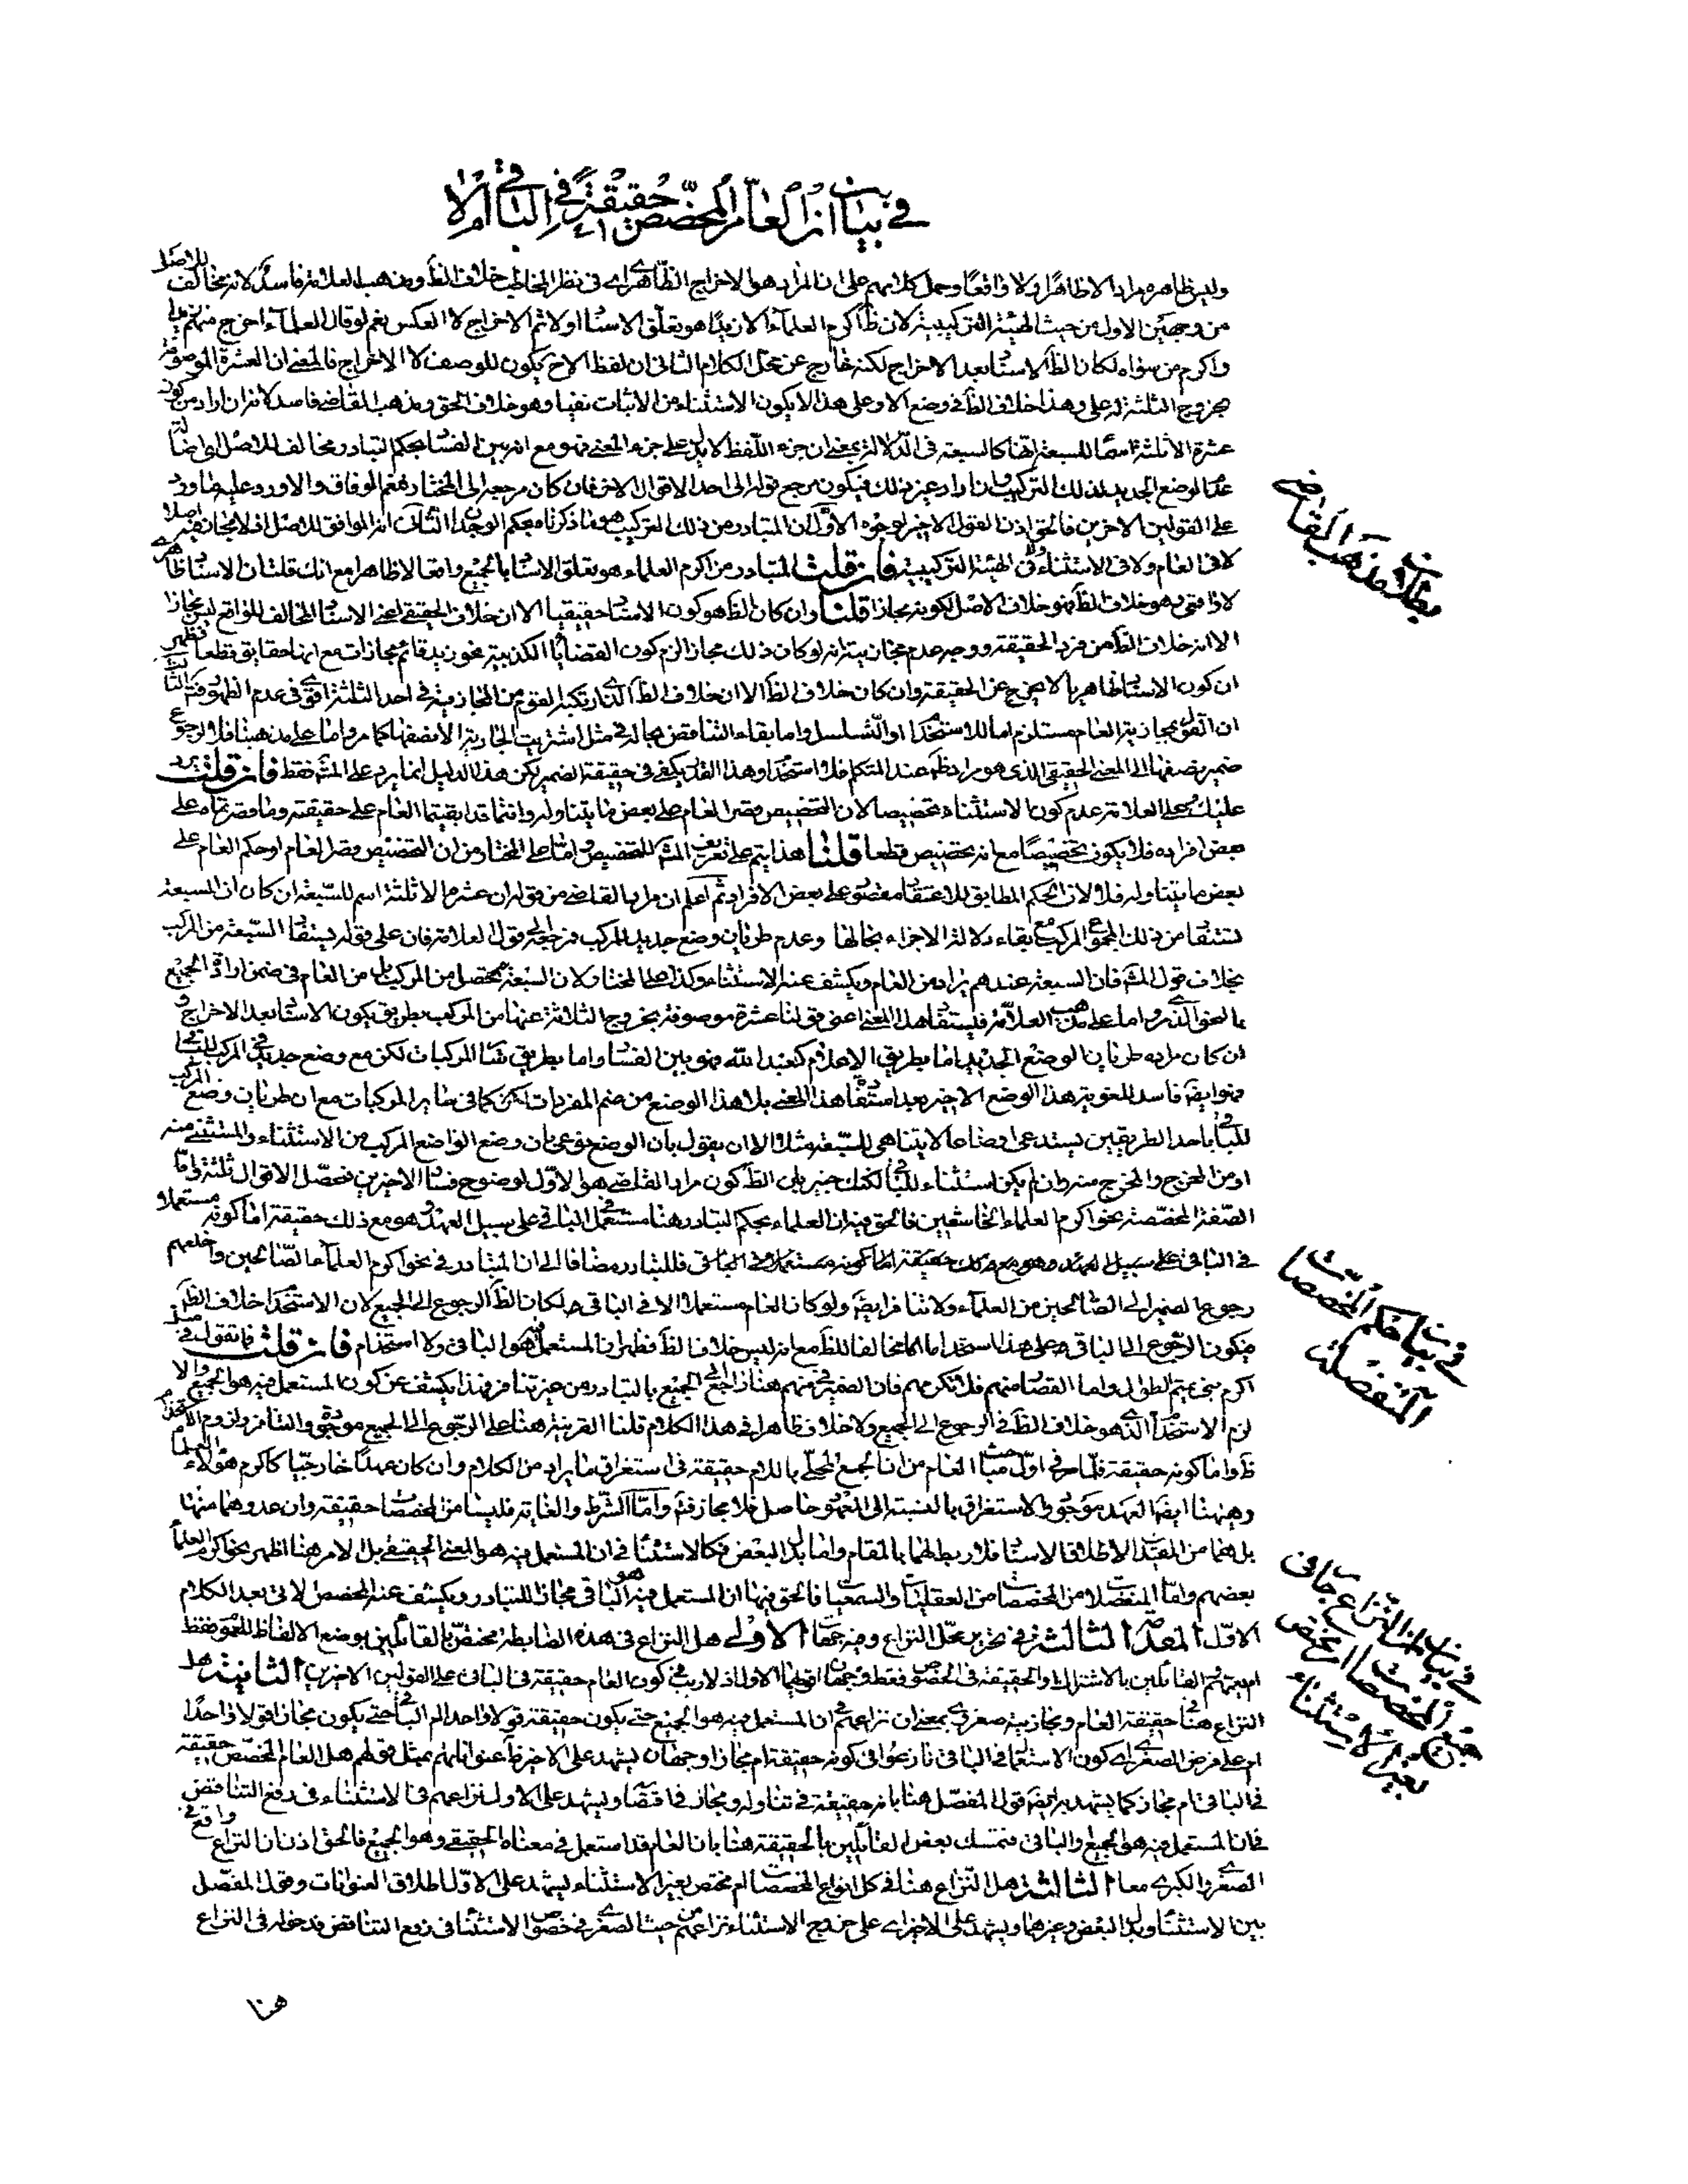 في بيان ان العام المخصص حقيقة في الباقي ام لا
وليس ظاهره مرادا لا ظاهرا ولا واقعا وحمل كلامهم على ان المراد هو الاخراج الظاهري اى في نظر المخاطب خلاف الظ ومذهب العلامة فاسد لانه مخالف للاصل
من وجهين الاول من حيث الهيئة التركيبية لان ظ اكرم العلماء الا زيدا هو تعلق الاسناد اولا ثم الاخراج لا العكس نعم لو قال العلماء اخرج منهم زيدا
واكرم من سواه لكان الظ الاسناد بعد الاخراج لكنه خارج عن محل الكلام الثاني ان لفظ الا ح يكون للوصف لا الاخراج فالمعنى ان العشرة الموصوفة
بخروج الثلثة له على وهذا خلاف الظ في وضع الا وعلى هذا لا يكون الاستثناء من الاثبات نفيا وهو خلاف الحق ومذهب القاضي فاسد لانه ان اراد من كون
عشرة الا ثلثة اسما للسبعة انها كالسبعة في الدلالة بمعنى ان جزء اللفظ لا يدل على جزء المعنى فهو مع انه بين الفساد بحكم التبادر مخالف للاصل ايضا
عدم الوضع الجديد لذلك التركيب وان اراد غير ذلك فيكون مرجع قوله الى احد الاقوال الاخر فان كان مرجعه الى المختار فنعم الوفاق والا ورد عليه ما ورد
على القولين الاخرين فالحق اذن القول الاخير لوجوه الاول ان المتبادر من ذلك التركيب هو ما ذكرناه بحكم الوجدان الثاني انه الموافق للاصل اذ لا مجاز فيه اصلا
لا في العام ولا في الاستثناء ولا في الهيئة التركيبية فان قلت المتبادر من اكرم العلماء هو تعلق الاسناد بالجميع واقعا لا ظاهرا مع انك قلت ان الاسناد ظاهري
لا واقعي وهو خلاف الظ فهو خلاف الاصل لكونه مجازا قلنا وان كان الظ هو كون الاسناد حقيقيا الا ان خلاف الحقيقي اعني الاسناد المخالف للواقع ليس مجازا
الا انه خلاف الظ من فرد الحقيقة ووجه عدم مجازيته انه لو كان ذلك مجازا لزم كون القضايا الكذبية نحو زيد قائم مجازات مع انها حقايق قطعا فظهر
ان كون الاسناد ظاهريا لا يخرج عن الحقيقة وان كان خلاف الظ الا ان خلاف الظ الذي ارتكبه القوم من المجازية في احد الثلثة اقوى في عدم الظهور فتم الثالث
ان القول بمجازية العام مستلزم اما للاستخدام او التسلسل واما بقاء التناقض بحاله في مثل اشتريت الجارية الا نصفها كما مر واما على مذهبنا فلا لرجوع
ضمير نصفها الى المعنى الحقيقي الذي هو مراد ظهر عند المتكلم فلا استخدام وهذا القدر يكفي في حقيقة الضمير لكن هذا الدليل انما يرد على المشهور فقط فان قلت يرد
عليك وعلى العلامة عدم كون الاستثناء تخصيصا لان التخصيص قصر العام على بعض ما يتناوله وانتما قد ابقيتما العام على حقيقته وما قصرتماه على
بعض افراده فلا يكون تخصيصا مع انه تخصيص قطعا قلنا هذا يتم على تعريف المشهور للتخصيص واما على المختار من ان التخصيص قصر العام او حكم العام على
بعض ما يتناوله فلا لان الحكم المطابق للاعتقاد مقصور على بعض الافراد ثم اعلم ان مراد القاضي من قوله ان عشرة الا ثلثة اسم للسبعة ان كان ان السبعة
تستفاد من ذلك المجموع المركب مع بقاء دلالة الاجزاء بحالها وعدم طريان وضع جديد للمركب فمرجعه الى قول العلامة فان على قوله يستفاد السبعة من المركب
بخلاف قول المشهور فان السبعة عندهم يراد من العام ويكشف عنه الاستثناء وكذا على المختار لان السبعة لم يحصل من المركب بل من العام في ضمن ارادة الجميع
بالنحو الذي مر واما على مذهب العلامة فليستفاد هذا المعنى اعني قولنا عشرة موصوفة بخروج الثلاثة عنها من المركب بطريق يكون الاسناد بعد الاخراج و
ان كان مراده طريان الوضع الجديد اما بطريق الاعلام كعبد الله فهو بين الفساد واما بطريق سائر المركبات لكن مع وضع جديد في المركب للباقي
فهو ايضا فاسد للغوية هذا الوضع الاخير بعد استفادة هذا المعنى بلا هذا الوضع من ضم المفردات كما في سائر المركبات مع ان طريان وضع المركب
للباقي باحد الطريقين يستدعي اوضاعا لا يتناهى للسبعة مثلا الا ان يقول بان الوضع نوعي بان وضع الواضع المركب من الاستثناء والمستثنى منه
او من المخرج والمخرج منه وان لم يكن استثناء للباقي لكنك خبير بان الظ كون مراد القاضي هو الاول لوضوح فساد الاخيرين فحصل الاقوال ثلثة واما
الصفة المخصصة نحو اكرم العلماء الخاشعين فالحق فيه ان العلماء بحكم التبادر هنا مستعمل في الباقي على سبيل العهد وهو مع ذلك حقيقة اما كونه مستعملا
في الباقي على سبيل العهد وهو مع ذلك حقيقة اما كونه مستعملا في الباقي فللتبادر مضافا الى ان المتبادر في نحو اكرم العلماء الصالحين واخلعهم
رجوع الضمير الى الصالحين من العلماء ولا تنافر ايضا ولو كان العام مستعملا لا في الباقي لكان الظ الرجوع الى الجميع لان الاستخدام خلاف الظ
فيكون الرجوع الى الباقي وعلى هذا استخداما مخالفا للظ مع انه ليس خلاف الظ فظهر ان المستعمل فيه هو الباقي ولا استخدام فان قلت فما تقول في مثل
اكرم بني تميم الطوال واما القصار منهم فلا تكرمهم فان الضمير في منهم هنا راجع الى الجميع بالتبادر من غير تنافر فهذا يكشف عن كون المستعمل فيه هو الجميع والا
لزم الاستخدام الذي هو خلاف الظ في الرجوع الى الجميع ولا خلاف ظاهرا في هذا الكلام قلنا القرينة هنا على الرجوع الى الجميع موجودة والتنافر ولزوم الاستخدام
ظ واما كونه حقيقة فلما مر في اول مباحث العام من ان الجمع المحلى باللام حقيقة في استغراق ما يراد من الكلام وان كان عهدا خارجيا كاكرم هؤلاء العلماء
وهيهنا ايضا العهد موجود والاستغراق بالنسبة الى المعهود حاصل فلا مجاز فتم واما الشرط والغاية فليسا من المخصصات حقيقة وان عدوهما منها
بل هما من المقيد لاطلاق الاسناد فلا ربط لهما بالمقام واما بدل البعض فكالاستثناء في ان المستعمل فيه هو المعنى الحقيقي بل الامر هنا اظهر نحو اكرم العلماء
بعضهم واما المنفصلات من المخصصات من العقليات والسمعيات فالحق فيها ان المستعمل فيه هو الباقي مجازا للتبادر ويكشف عنه المخصص لا في بعد الكلام
الاول المقدمة الثالثة في تحرير محل النزاع وفيه جهات الاولى هل النزاع في هذه الضابطة مختص بالقائلين بوضع الالفاظ للعموم فقط
ام يعمهم القائلين بالاشتراك والحقيقة في الخصوص فقط وجهان اقواهما الاول اذ لا ريب في كون العام حقيقة في الباقي على القولين الاخرين الثانية هل
النزاع هنا في حقيقة العام ومجازيته صغروى بمعنى ان نزاعهم في ان المستعمل فيه هو الجميع حتى يكون حقيقة قولا واحدا ام الباقي حتى يكون مجازا قولا واحدا
ام على فرض الصغرى اى كون الاستعمال في الباقي نازعوا في كونه حقيقة ام مجازا وجهان يشهد على الاخير ظ عنواناتهم بمثل قولهم هل العام المخصص حقيقة
في الباقي ام مجاز كما يشهد به ايضا قول المفصل هنا بانه حقيقة في تناوله ومجاز في اقتصاره ويشهد على الاول نزاعهم في الاستثناء في دفع التناقض
في ان المستعمل فيه هو الجميع او الباقي فتمسك بعض القائلين بالحقيقة هنا بان العام قد استعمل في معناه الحقيقي وهو الجميع فالحق اذن ان النزاع واقع في
الصغرى والكبرى معا الثالثة هل النزاع هنا في كل انواع المخصصات ام مختص بغير الاستثناء يشهد على الاول اطلاق العنوانات وقول المفصل
بين الاستثناء وبدل البعض وغيرهما ويشهد على الاخير اى على خروج الاستثناء نزاعهم من حيث الصغرى في خصوص الاستثناء في رفع التناقض فدخوله في النزاع
هنا
بطلان مذهب القاضي
في بيان حكم المخصصات المنفصلات
في بيان ان النزاع جار في جميع المخصصات ام مختص بغير الاستثناء